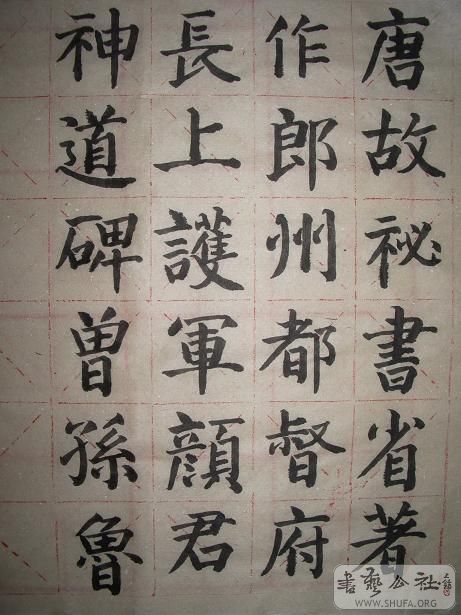 唐故祕書省著
作郎州都督府
長上護軍顔君
神道碑曾孫魯
書藝公社
WWW.SHUFA.ORG